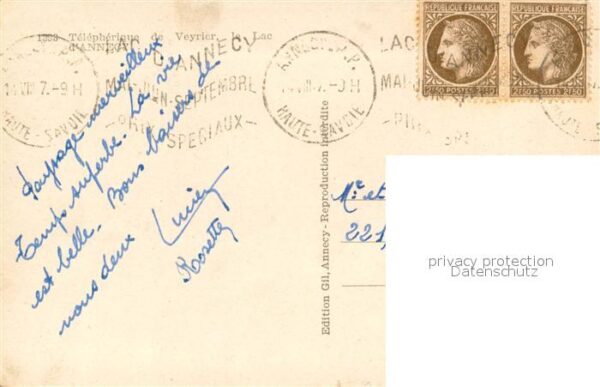 1308 Téléphérique de Veyrier, le Lac
d'ANNECY
LAC D'ANNECY
MAI-JUIN-SEPTEMBRE
PRIX
SPÉCIAUX
ANNECY R.P.
HAUTE-SAVOIE
LAC
MAI-
PRIX
SPE
REPUBLIQUE FRANÇAISE
2F50 POSTES 2F50
REPUBLIQUE FRANÇAISE
2F50 POSTES 2F50
Paysage merveilleux
Temps superbe. La vie
est belle. Bons baisers de
nous deux
Lucien
Rosette
Edition Gil, Annecy - Reproduction interdite
Me et
221,
privacy protection
Datenschutz